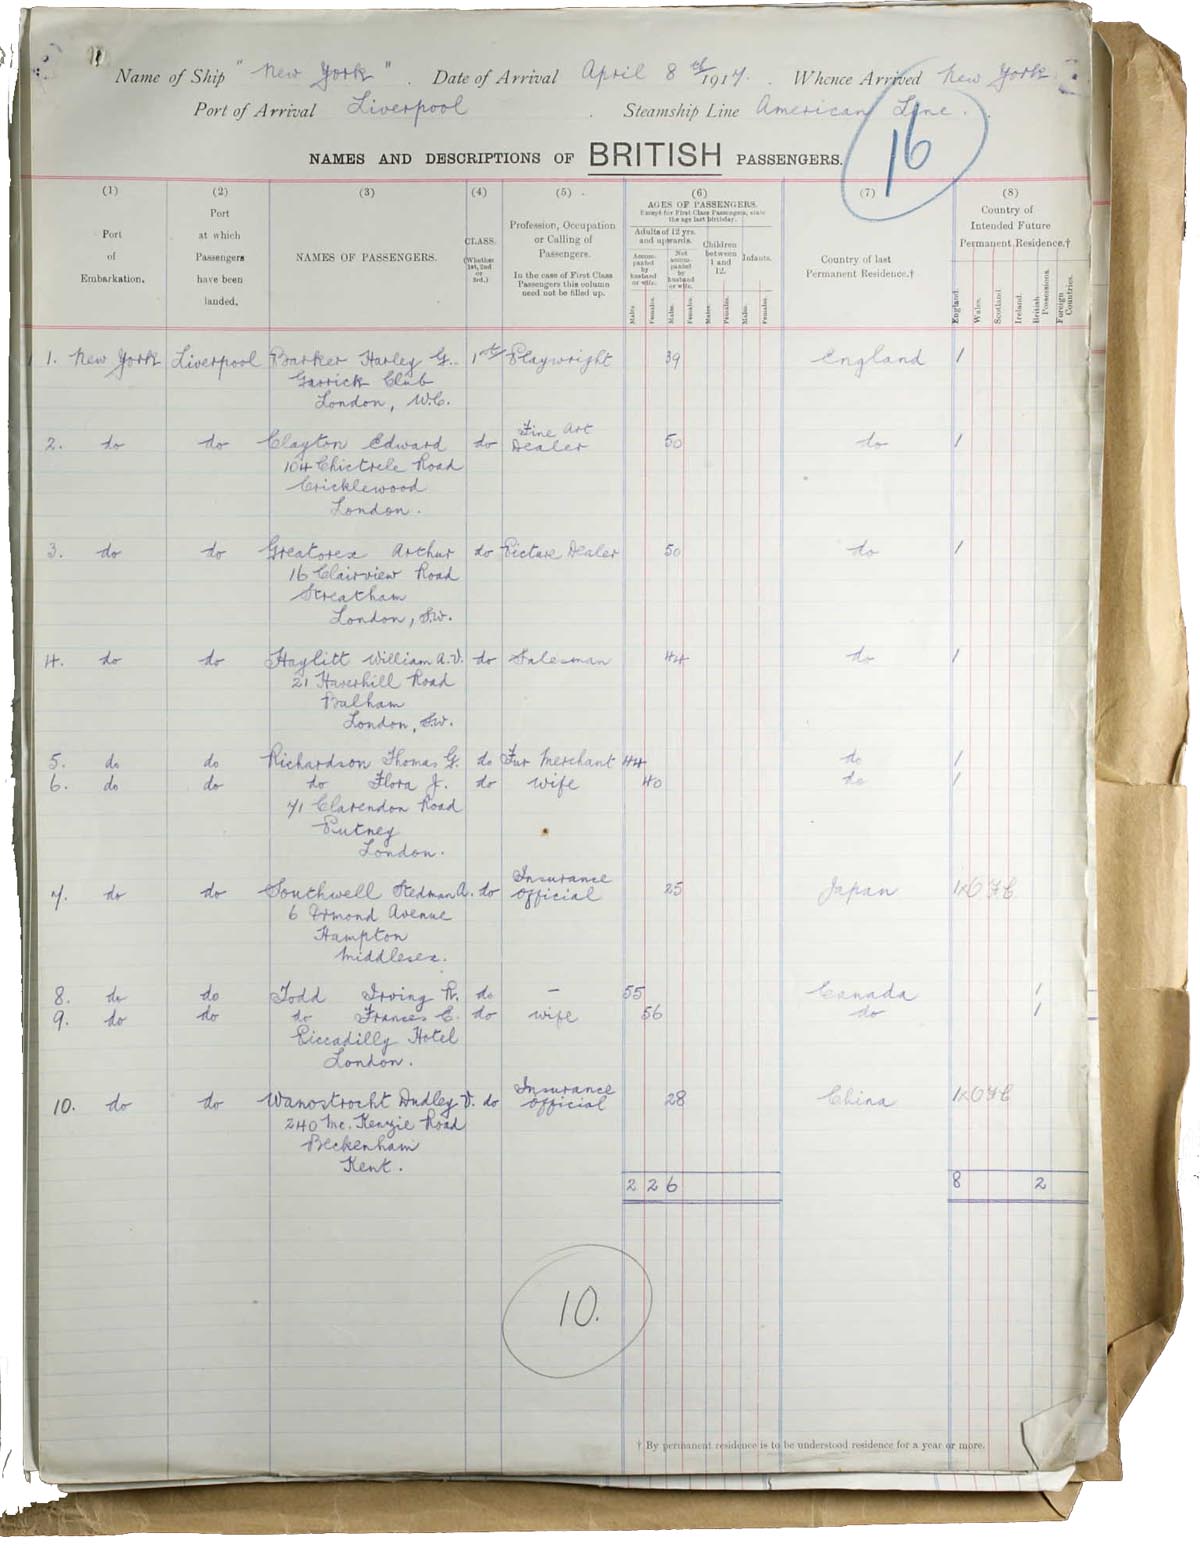 Name of Ship "New York". Date of Arrival April 8th 1917. Whence Arrived New York
Port of Arrival Liverpool. Steamship Line American Line.
16
NAMES AND DESCRIPTIONS OF BRITISH PASSENGERS.
(1) (2) (3) (4) (5) (6) (7) (8)
Port of Embarkation.
Port at which Passengers have been landed.
NAMES OF PASSENGERS.
CLASS. (Whether 1st, 2nd or 3rd.)
Profession, Occupation or Calling of Passengers.
In the case of First Class Passengers this column need not be filled up.
AGES OF PASSENGERS.
Except for First Class Passengers, state the age last birthday.
Adults of 12 yrs. and upwards.
Accompanied by husband or wife.
Not accompanied by husband or wife.
Children between 1 and 12.
Infants.
Males. Females. Males. Females. Males. Females. Males. Females.
Country of last Permanent Residence.†
Country of Intended Future Permanent Residence.†
England. Wales. Scotland. Ireland. British Possessions. Foreign Countries.
1. New York Liverpool Barker Harley G. 1st Playwright 39 England 1
Garrick Club
London, W.C.
2. do do Clayton Edward do Fine Art Dealer 50 do 1
104 Chictrele Road
Cricklewood
London.
3. do do Greatorex Arthur do Picture Dealer 50 do 1
16 Clairview Road
Streatham
London, S.W.
4. do do Haylitt William A.V. do Salesman 44 do 1
21 Haverhill Road
Balham
London, S.W.
5. do do Richardson Thomas G. do Fur Merchant 44 do 1
6. do do do Flora J. do wife 40 do 1
71 Clarendon Road
Putney
London.
7. do do Southwell Stedman A. do Insurance Official 25 Japan 1
6 Ormond Avenue
Hampton
Middlesex.
8. do do Todd Irving R. do – 55 Canada 1
9. do do do Frances C. do wife 56 do 1
Piccadilly Hotel
London.
10. do do Wanostrocht Dudley V. do Insurance Official 28 China 1
240 Mc. Kenzie Road
Beckenham
Kent.
2 2 6 8 2
10.
† By permanent residence is to be understood residence for a year or more.